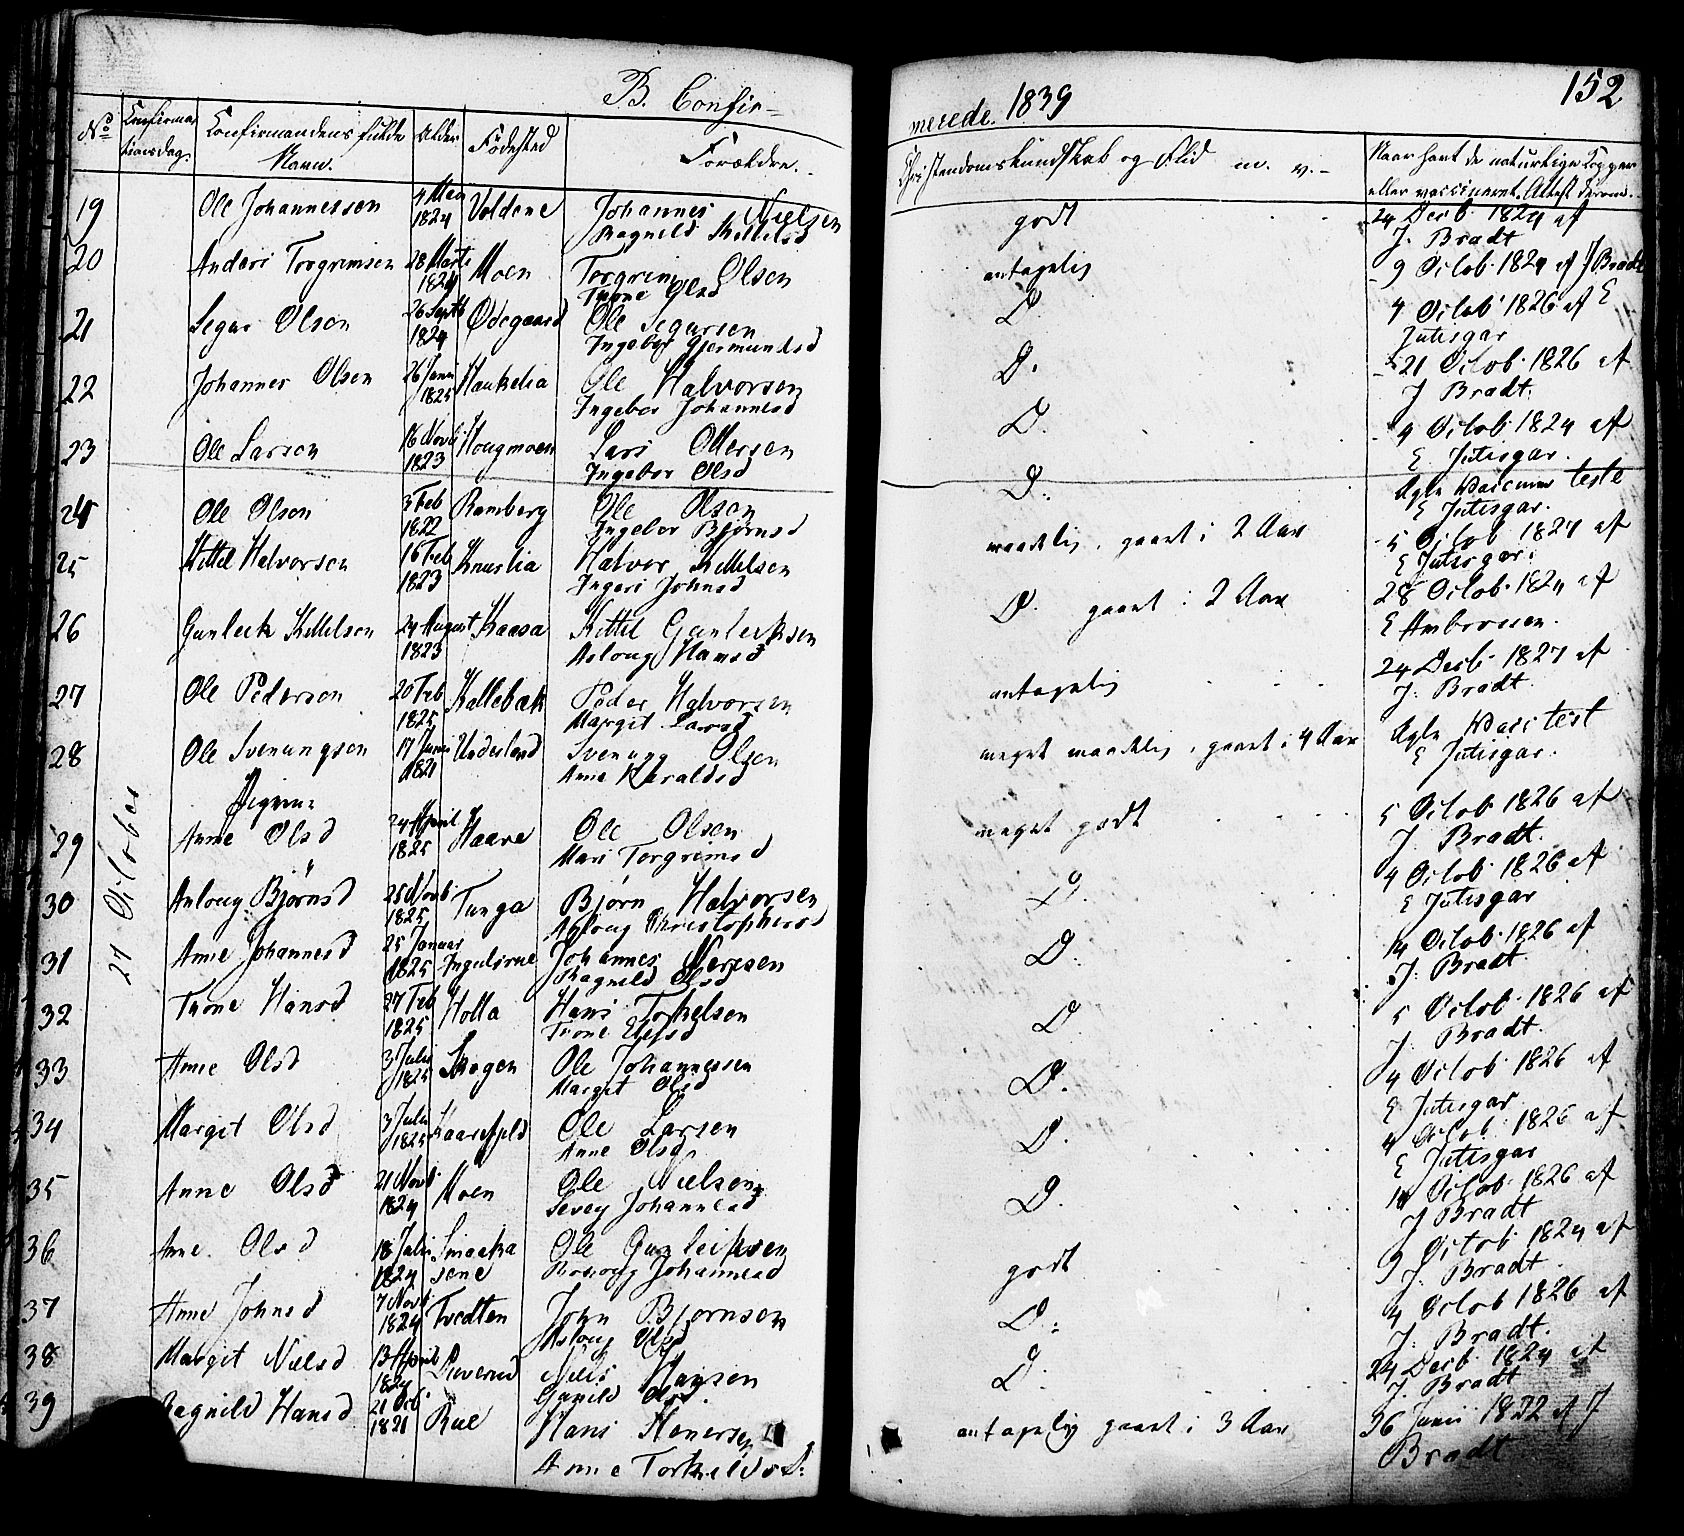 B. Confir-
merede. 1839
152
No
Confirma
tionsdag.
Confirmandens fulde
Navn.
Alder
Fødested
Forældre.
Christendomskundskab og Flid m. v.
Naar havt de naturlige Kopper
eller vaccineret. Attest derom.
21 October
19 Ole Johannessen 4 Mai 1824 Voldene Johannes Nielsen
Ragnild Kittelsd
godt 24 Decb 1824 af
J. Bradt
20 Anders Torgrimsen 28 Marts 1824 Moen Torgrim Olsen
Tone Olsd
antagelig 9 Octob 1824 af J Bradt
21 Segur Olsen 26 Septb 1824 Ødegaard Ole Segursen
Ingebor Gjermundsd
D. 4 Octob 1826 af E
Jutisgar
22 Johannes Olsen 26 Janu 1825 Haukelia Ole Halvorsen
Ingebor Johannesd
D. 21 Octob. 1826 af
J Bradt.
23 Ole Larsen 16 Novb 1823 Hougmoen Lars Ottersen
Ingebor Olsd
D. 4 Octob 1824 af
E Jutisgar.
24 Ole Olsen 3 Feb 1822 Ramberg Ole Olsen
Ingebor Bjørnsd
D. teste
E Jutisgar.
25 Kittel Halvorsen 16 Feb 1823 Knuslia Halvor Kittelsen
Ingeri Johnsd
maadelig, gaaet i 2 Aar 5 Octob 1827 af
E Jutisgar.
26 Gunleck Kittelsen 24 August 1823 Kaasa Kittel Gunleiksen
Asloug Hansd
D. gaaet i 2 Aar 28 Octob. 1824 af
E Ambrosen.
27 Ole Pedersen 20 Feb 1825 Kallebak Peder Halvorsen
Margit Larsd
antagelig 24 Decb 1827 af
J. Bradt.
28 Ole Svenungsen 17 Juni 1821 Underland Svenung Olsen
Anne Haraldsd
meget maadelig, gaaet i 4 Aar test
E Jutisgar.
Pigen:
29 Anne Olsd 24 April 1825 Haave Ole Olsen
Mari Torgrimsd
meget godt 5 Octob 1826 af
J. Bradt.
30 Asloug Bjørnsd 25 Novb 1825 Tunga Bjørn Halvorsen
Asloug Christophersd
D. 4 Octob. 1826 af
E Jutisgar
31 Anne Johannesd 25 Januar 1825 Ingulsrue Johannes
Ragnild Olsd
D. 14 Octob. 1826 af
J. Bradt.
32 Tone Hansd 27 Feb 1825 Holla Hans Torkelsen
Tone Elefsd
D. 5 Octob. 1826 af
J. Bradt.
33 Anne Olsd 3 Julii 1825 Skogen Ole Johannessen
Margit Olsd
D. 4 Octob 1826 af
E Jutisgar.
34 Margit Olsd 3 Julii 1825 Ole Larsen
Anne Olsd
D. 4 Octob. 1826 af
E Jutisgar
35 Anne Olsd 21 Novb 1824 Moen Ole Nielsen
Sevey Johannesd
D. 14 Octob. 1826 af
J Bradt
36 Anne Olsd 18 Julii 1824 Smaakasene Ole Gunleiksen
Johannesd
godt 9 Octob 1824 af
J. Bradt.
37 Anne Johnsd 7 Novb 1824 Tvedten John Bjørnsen
Asloug Olsd
D. 4 Octob 1826 af
J. Bradt.
38 Margit Nielsd 13 April 1824 Niels Hansen
Gunild Olsd.
D. 24 Decb. 1824 af
J. Bradt
39 Ragnild Hansd 21 Octb 1821 Rue Hans
Anne Torkildsd.
antagelig gaaet i 3 Aar Junii 1822 af J
Bradt